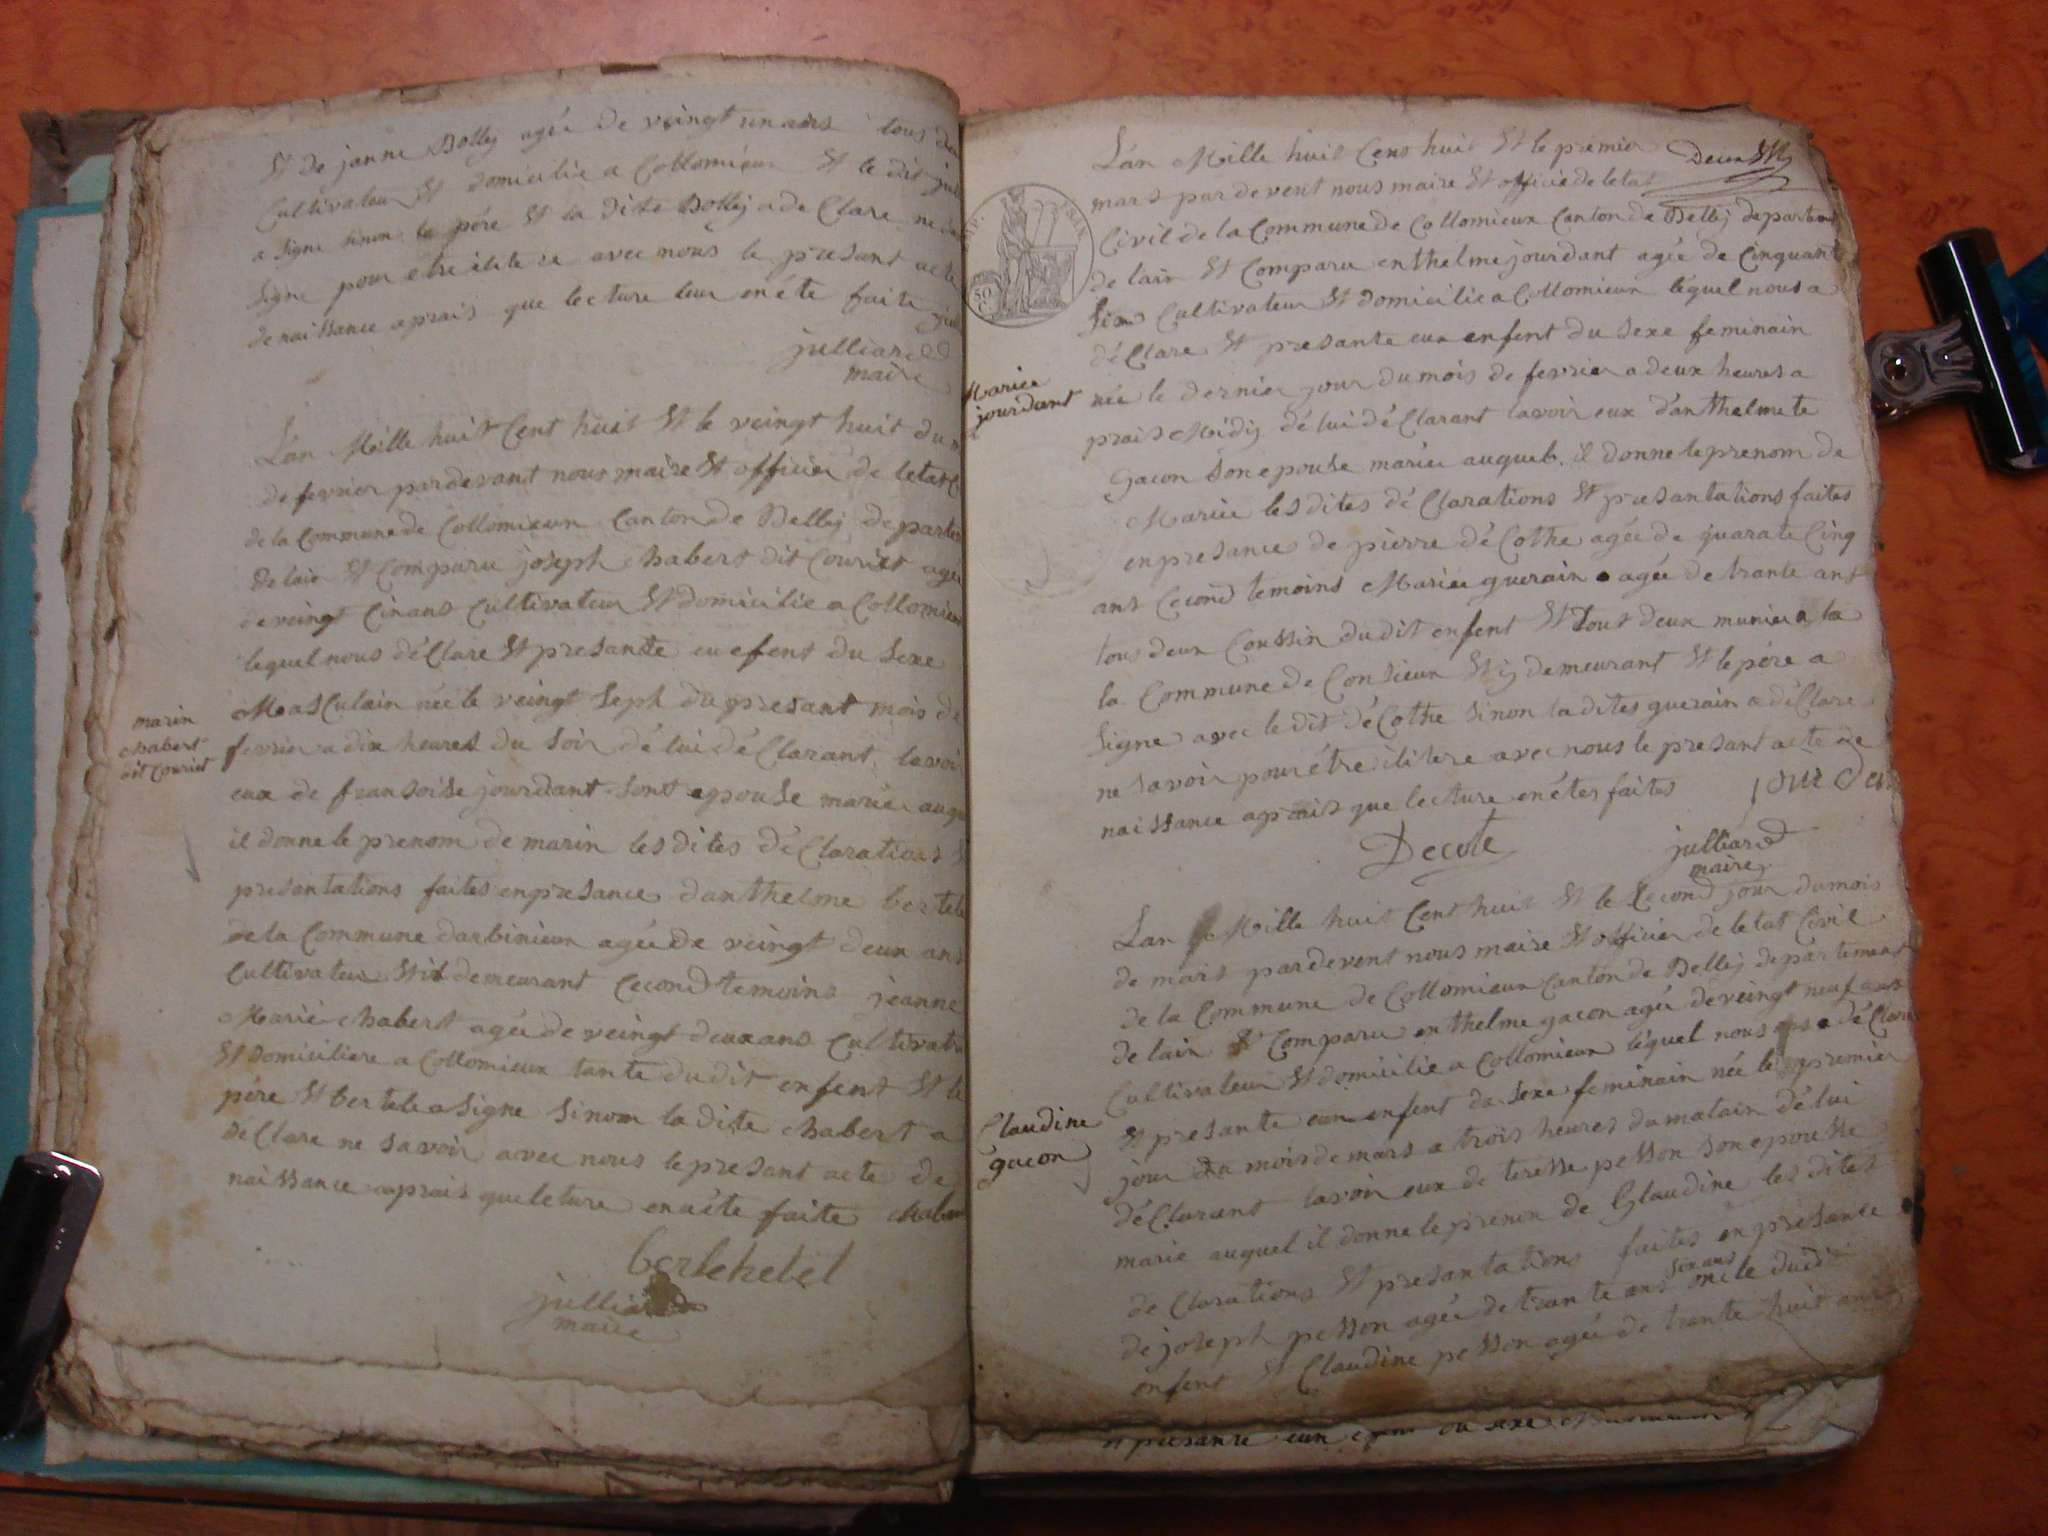 Et de janne Bolley agée de veingt un ans tous deu
Cultivateur Et domicilie a Collomieux Et le dit
a Signe sinon le pére Et la dite Bolley a de Clare ne
Signe pour etre ilitere avec nous le presant acte
de naissance aprais que lecture leur en été faite
julliard
maire
Lan Mille huit Cent huit Et le veingt huit du
de fevrier pardevant nous maire Et officier de letat
de la Commune de Collomieux Canton de Belley departe
de lain Et Comparu joseph Chabert dit Couriet agée
de veingt Cin ans Cultivateur Et domicilie a Collomieux
lequel nous déClare Et presante eu efent du Sexe
MasCulain née le veingt Seph du presant mois de
fevrier a dix heures du Soir dé lui déClarant lavoir
eux de fransoise jourdant sont epouse mariée auqu
il donne le prenom de marin les dites déClarations
presantations faites en presance danthelme bertele
de la Commune darbinieux agée de veingt deux ans
Cultivateur Et il demeurant Cecond temoins jeanne
Marie Chabert agée de veingt deux ans Cultivatr
Et domiciliere a Collomieux tante du dit enfent Et le
pére Et bertele a Signe Sinon la dite Chabert a
deClare ne Savoir avec nous le presant acte de
naissance aprais que leture en a été faite Chaber
bertehelet
julliard
maire
marin
Chabert
dit Couriet
Lan Mille huit Cens huit Et le premier
Deux
mars pardevent nous maire Et officié de letat
Civil de la Commune de Collomieux Canton de Belley departem
de lain Et Comparu enthelme jourdant agée de Cinquante
Six Cultivateur Et domicilie a Collomieux léquel nous a
déClare Et presante eux enfent du Sexe feminain
née le dernier jour du mois de fevrier a deux heures a
prais Midy dé lui déClarant lavoir eux danthelmete
gacon Son epouse mariée auquel il donne le prenom de
Mariée les dites déClarations Et presantations faites
en presance de pierre déCothe agée de quarate Cinq
ans Cecond temoins Mariée guerain agée de trante ans
tous deux Coussin du dit enfent Et tout deux munier a la
la Commune de Consieux Et y demeurant Et le pére a
Signe avec le dit déCothe Sinon la dites guerain a déClare
ne savoir pour étre ilitere avec nous le presant acte de
naissance aprais que lecture en étes faites
Decote
julliard
maire
50
C.
Mariee
jourdant
Lan Mille huit Cent huit Et le Cecond jour du mois
de mars pardevent nous maire Et officier de letat Civil
de la Commune de Collomieux Canton de Belley departement
de lain Et Comparu enthelme gacon agée de veingt neuf ans
Cultivateur Et domicilie a Collomieux léquel nous a déClare
Et presante eun enfent du Sexe feminain née le premier
jour du mois de mars a trois heures du matain dé lui
déClarant lavoir eux de teresse pesson Son epousse
marie auquel il donne le prenon de Claudine les dites
deClarations Et presantations faites en presance
Six ans
de joseph pesson agée de trante ans oncle du dit
enfent Et Claudine pesson agée de trante huit ans
Claudine
gacon
presante eun du sexe